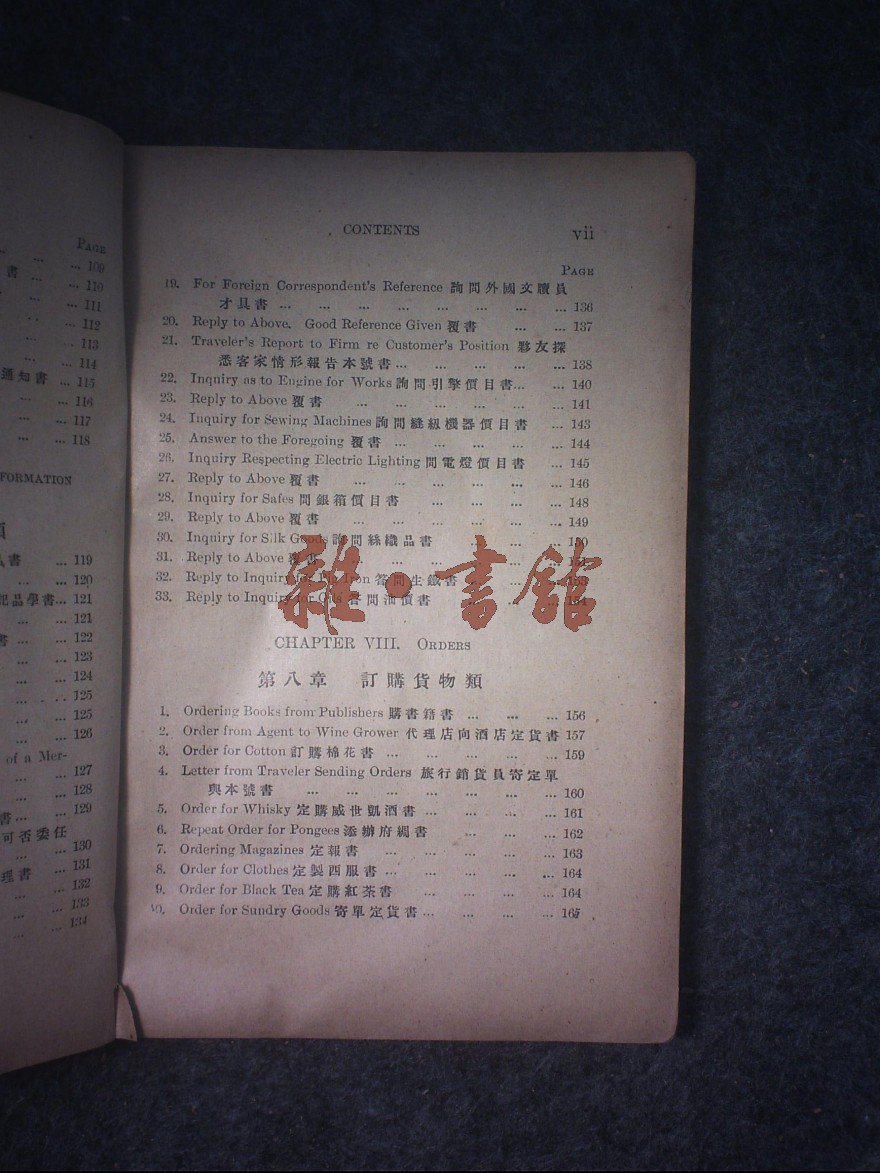 PAGE
... ... ... 109
書 ... ... 110
... ... 111
... ... 112
... ... 113
... 114
通知書 ... 115
... ... 116
... ... 117
... ... 118
FORMATION
類
書 ... 119
... ... ... 120
品學書... 121
... ... 121
書 ... ... 122
... ... 123
... ... 124
... ... 125
... ... 125
... ... 126
of a Mer-
... ... 127
... ... 128
書... ... 129
可否委任
... ... 130
理書 ... 131
... ... 132
... ... 133
... ... 134
CONTENTS vii
PAGE
19. For Foreign Correspondent's Reference 詢問外國文牘員
才具書 ... ... ... ... ... ... ... ... 136
20. Reply to Above. Good Reference Given 覆書 ... ... 137
21. Traveler's Report to Firm re Customer's Position 夥友探
悉客家情形報告本號書... ... ... ... ... 138
22. Inquiry as to Engine for Works 詢問引擎價目書... ... 140
23. Reply to Above 覆書 ... ... ... ... ... 141
24. Inquiry for Sewing Machines 詢問縫紉機器價目書 ... 143
25. Answer to the Foregoing 覆書 ... ... ... ... ... 144
26. Inquiry Respecting Electric Lighting 問電燈價目書 ... 145
27. Reply to Above 覆書 ... ... ... ... ... ... 146
28. Inquiry for Safes 問銀箱價目書 ... ... ... ... 148
29. Reply to Above 覆書 ... ... ... ... ... 149
30. Inquiry for Silk Goods 詢問絲織品書 ... ... ... 150
31. Reply to Above 覆書 ... ... ... ... ... ... 151
32. Reply to Inquiry for Pig Iron 答問生鐵書 ... ... ... 153
33. Reply to Inquiry for Oils 答問油價書 ... ... ... 154
雜·書館
CHAPTER VIII. ORDERS
第八章 訂購貨物類
1. Ordering Books from Publishers 購書籍書 ... ... ... 156
2. Order from Agent to Wine Grower 代理店向酒店定貨書 157
3. Order for Cotton 訂購棉花書 ... ... ... ... ... 159
4. Letter from Traveler Sending Orders 旅行銷貨員寄定單
與本號書 ... ... ... ... ... ... ... 160
5. Order for Whisky 定購威世凱酒書 ... ... ... ... 161
6. Repeat Order for Pongees 添辦府綢書 ... ... ... 162
7. Ordering Magazines 定報書 ... ... ... ... ... 163
8. Order for Clothes 定製西服書... ... ... ... ... 164
9. Order for Black Tea 定購紅茶書 ... ... ... ... 164
10. Order for Sundry Goods 寄單定貨書... ... ... ... 165